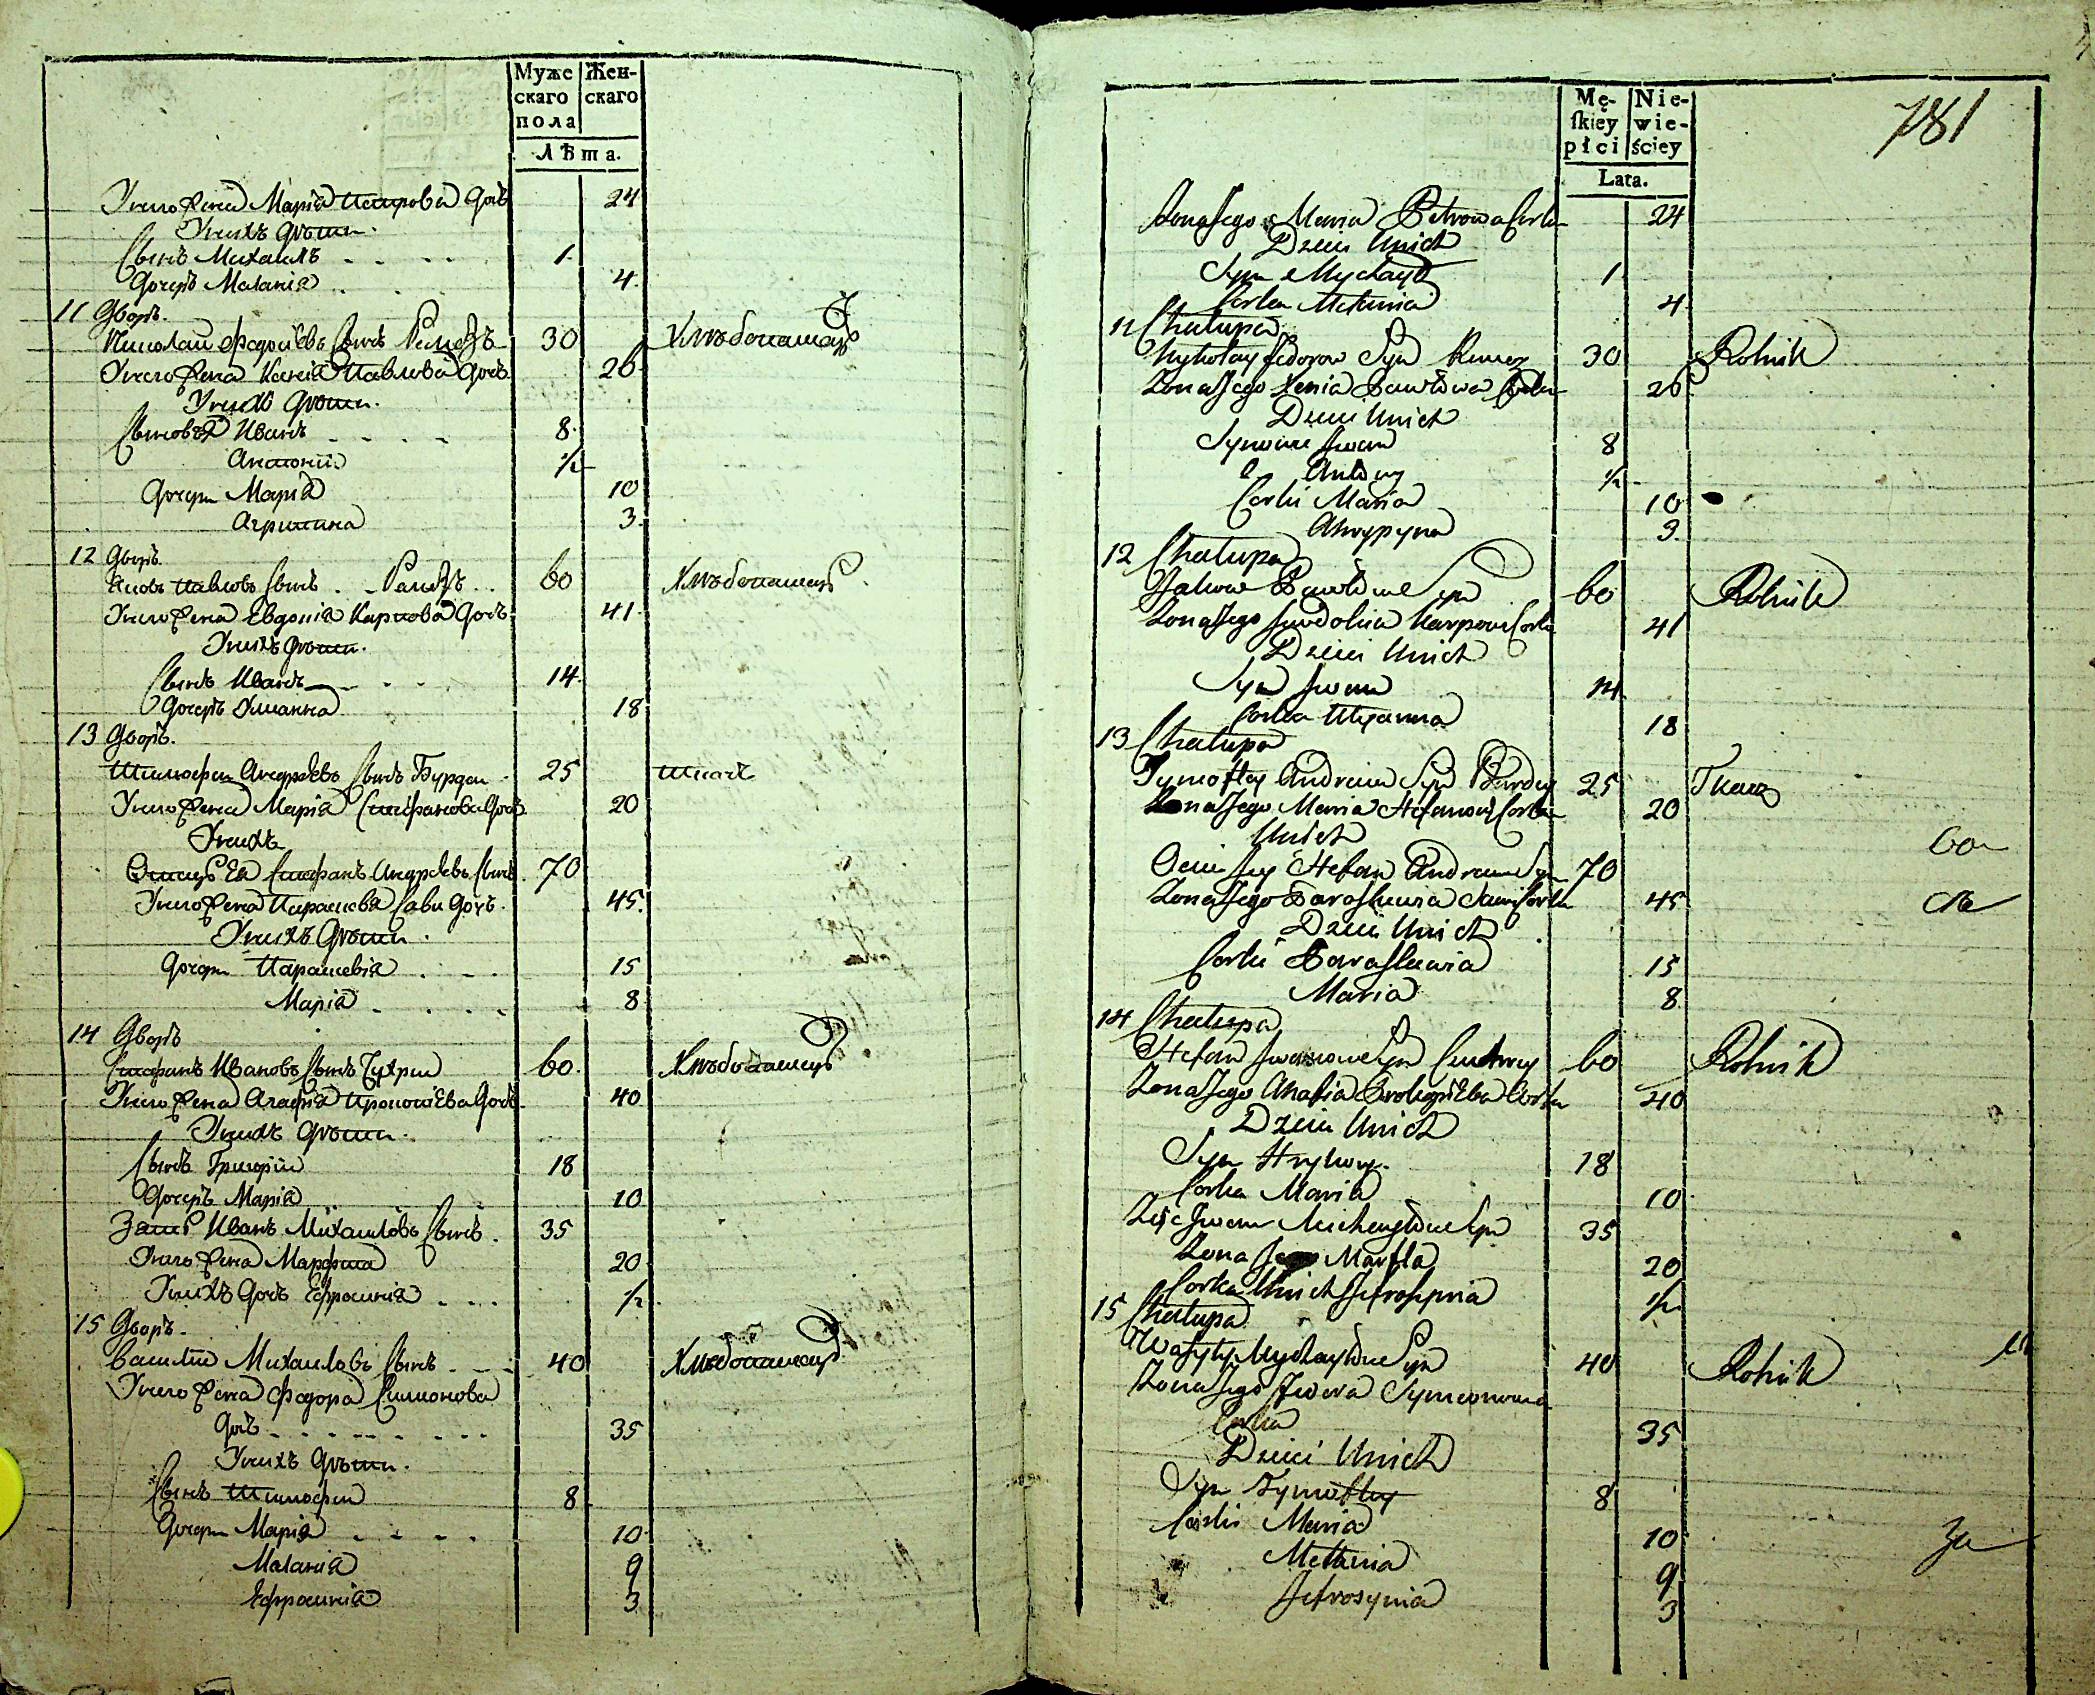 Муже
скаго
пола
Жен-
скаго
Лѣта.
У него Жена Марія Петрова Дочь 24
У нихъ Дѣти.
Сынъ Михаилъ 1
Дочерь Маланія 4.
11 Дворъ.
Николай Федоревъ Сынъ 30 Хлѣбопашецъ
У него Жена Ксенія Павлова Дочь 26
У нихъ Дѣти.
Сыновья Иванъ 8.
Антоній ½
Дочери Марія 10
Агрипина 3.
12 Дворъ.
Яковъ Павловъ Сынъ 60 Хлѣбопашецъ
У него Жена Евдокія Карпова Дочь 41.
У нихъ Дѣти.
Сынъ Иванъ 14.
Дочерь Уліанна 18
13 Дворъ.
Тимофей Андреевъ Сынъ Бурдей 25 Ткачь
У него Жена Марія Стефанова Дочь 20
У нихъ
Отецъ Ея Стефанъ Андреевъ Сынъ 70
У него Жена Парасковія Савы Дочь 45.
У нихъ Дѣти.
Дочери Парасковія 15
Марія 8.
14 Дворъ
Стефанъ Ивановъ Сынъ 60. Хлѣбопашецъ
У него Жена Агафія Прокопіева Дочь 40
У нихъ Дѣти.
Сынъ Григорій 18
Дочерь Марія 10
Зять Иванъ Михаиловъ Сынъ. 35
У него Жена Марфта 20
У нихъ Дочь Ефросинія ½
15 Дворъ.
Василій Михаиловъ Сынъ 40 Хлѣбопашецъ
У него Жена Федора Симионова
Дочь 35
У нихъ Дѣти.
Сынъ Тимофей 8
Дочери Марія 10
Маланія 9
Ефросинія 3
Mę-
ſkiey
płci
Nie-
wie-
ściey
Lata.
781
Zona Jego Maria Petrowa Corka 24
Dzieci Unich
Syn Mychayło 1
Corka Mełania 4
11 Chałupa
Mykołay Fedorow Syn 30 Rolnik
Zona Jego Xenia Pawłowa Corka 26
Dzieci Unich
Synowie Iwan 8
Antony ½
Corki Maria 10
Ahrypyna 3.
12 Chałupa
Jakow Pawłow Syn 60 Rolnik
Zona Jego Jewdokia Karpowa Corka 41
Dzieci Unich
Syn Iwan 14
Corka Ulyanna 18
13 Chałupa
Tymoftey Andreiew Syn Burdey 25 Tkacz
Zona Jego Maria Stefanowa Corka 20
Unich
Ociec Jey Stefan Andreiew Syn 70
Zona Jego Paraskewia Sawi Corka 45
Dzieci Unich
Corki Paraskewia 15
Maria 8
14 Chałupa
Stefan Iwanow Syn 60 Rolnik
Zona Jego Ahafia Prokopiewa Corka 40
Dzieci Unich
Syn Hryhory 18
Corka Maria 10
Zięc Iwan Michayłow Syn 35
Zona Jego Marfta 20
Corka Unich Jefrosynia ½
15 Chałupa
Wasyly Mychayłow Syn 40 Rolnik
Zona Jego Fedora Symeonowa
Corka 35
Dzieci Unich
Syn Tymoftey 8
Corki Maria 10
Mełania 9
Jefrosynia 3